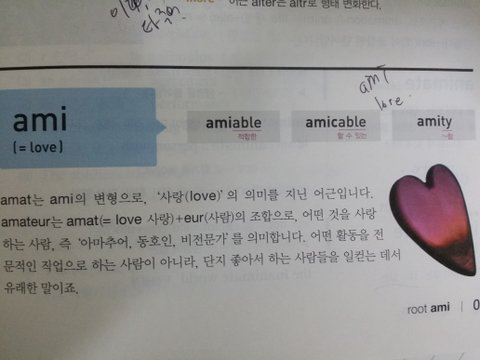 어근 alter는 altr로 형태 변화한다.
ami
(= love)
amiable
적합한
amicable
할 수 있는
amity
~함
love
amat는 ami의 변형으로, '사랑(love)'의 의미를 지닌 어근입니다.
amateur는 amat(= love 사랑)+eur(사람)의 조합으로, 어떤 것을 사랑
하는 사람, 즉 '아마추어, 동호인, 비전문가'를 의미합니다. 어떤 활동을 전
문적인 직업으로 하는 사람이 아니라, 단지 좋아서 하는 사람들을 일컫는 데서
유래한 말이죠.
root ami | 0